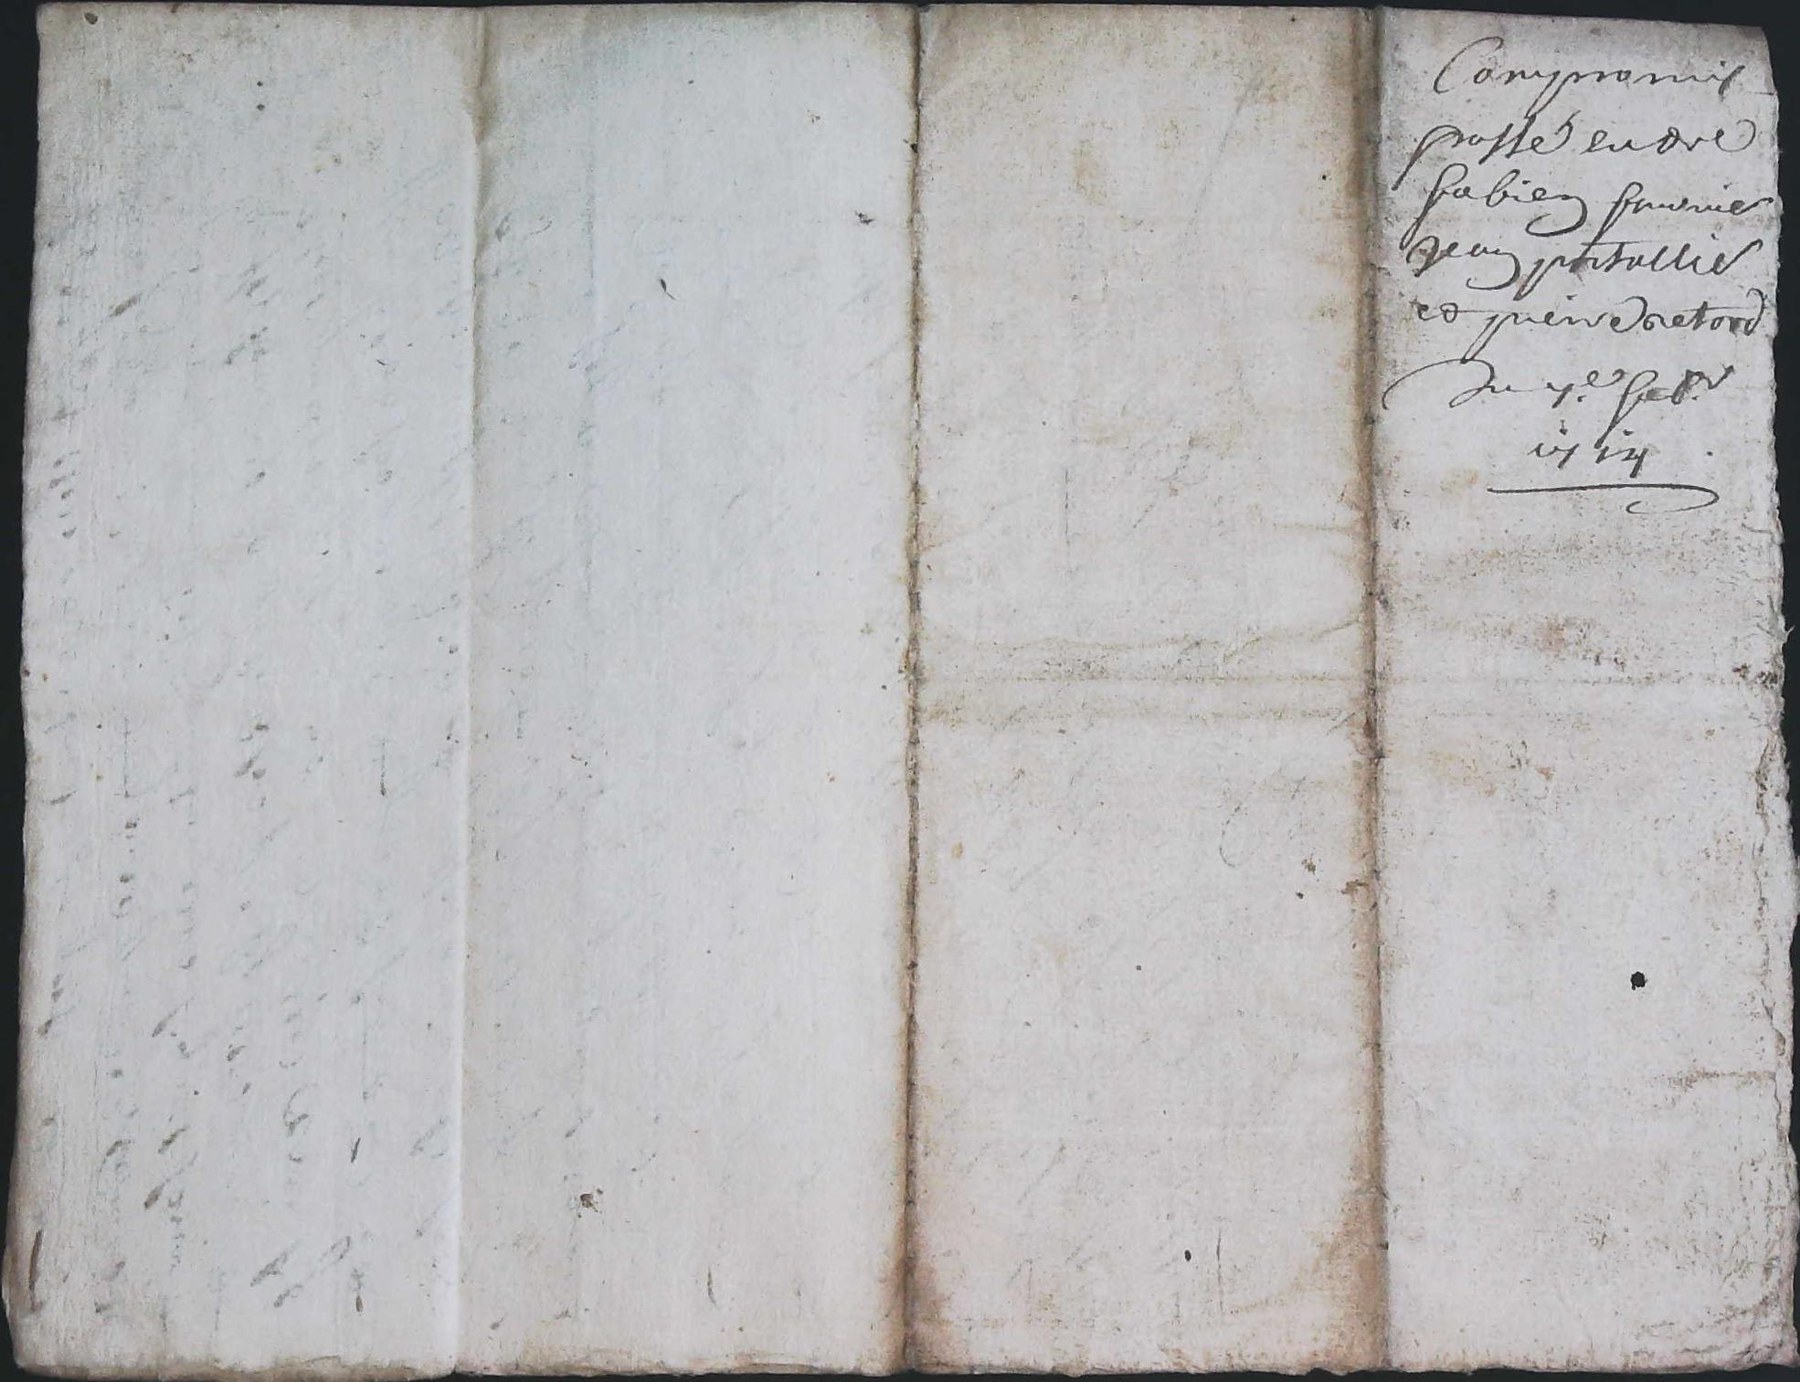 Compromis
passé entre
fabien fournier
Jean portallier
et pierre retord
Du 7e febr
1714